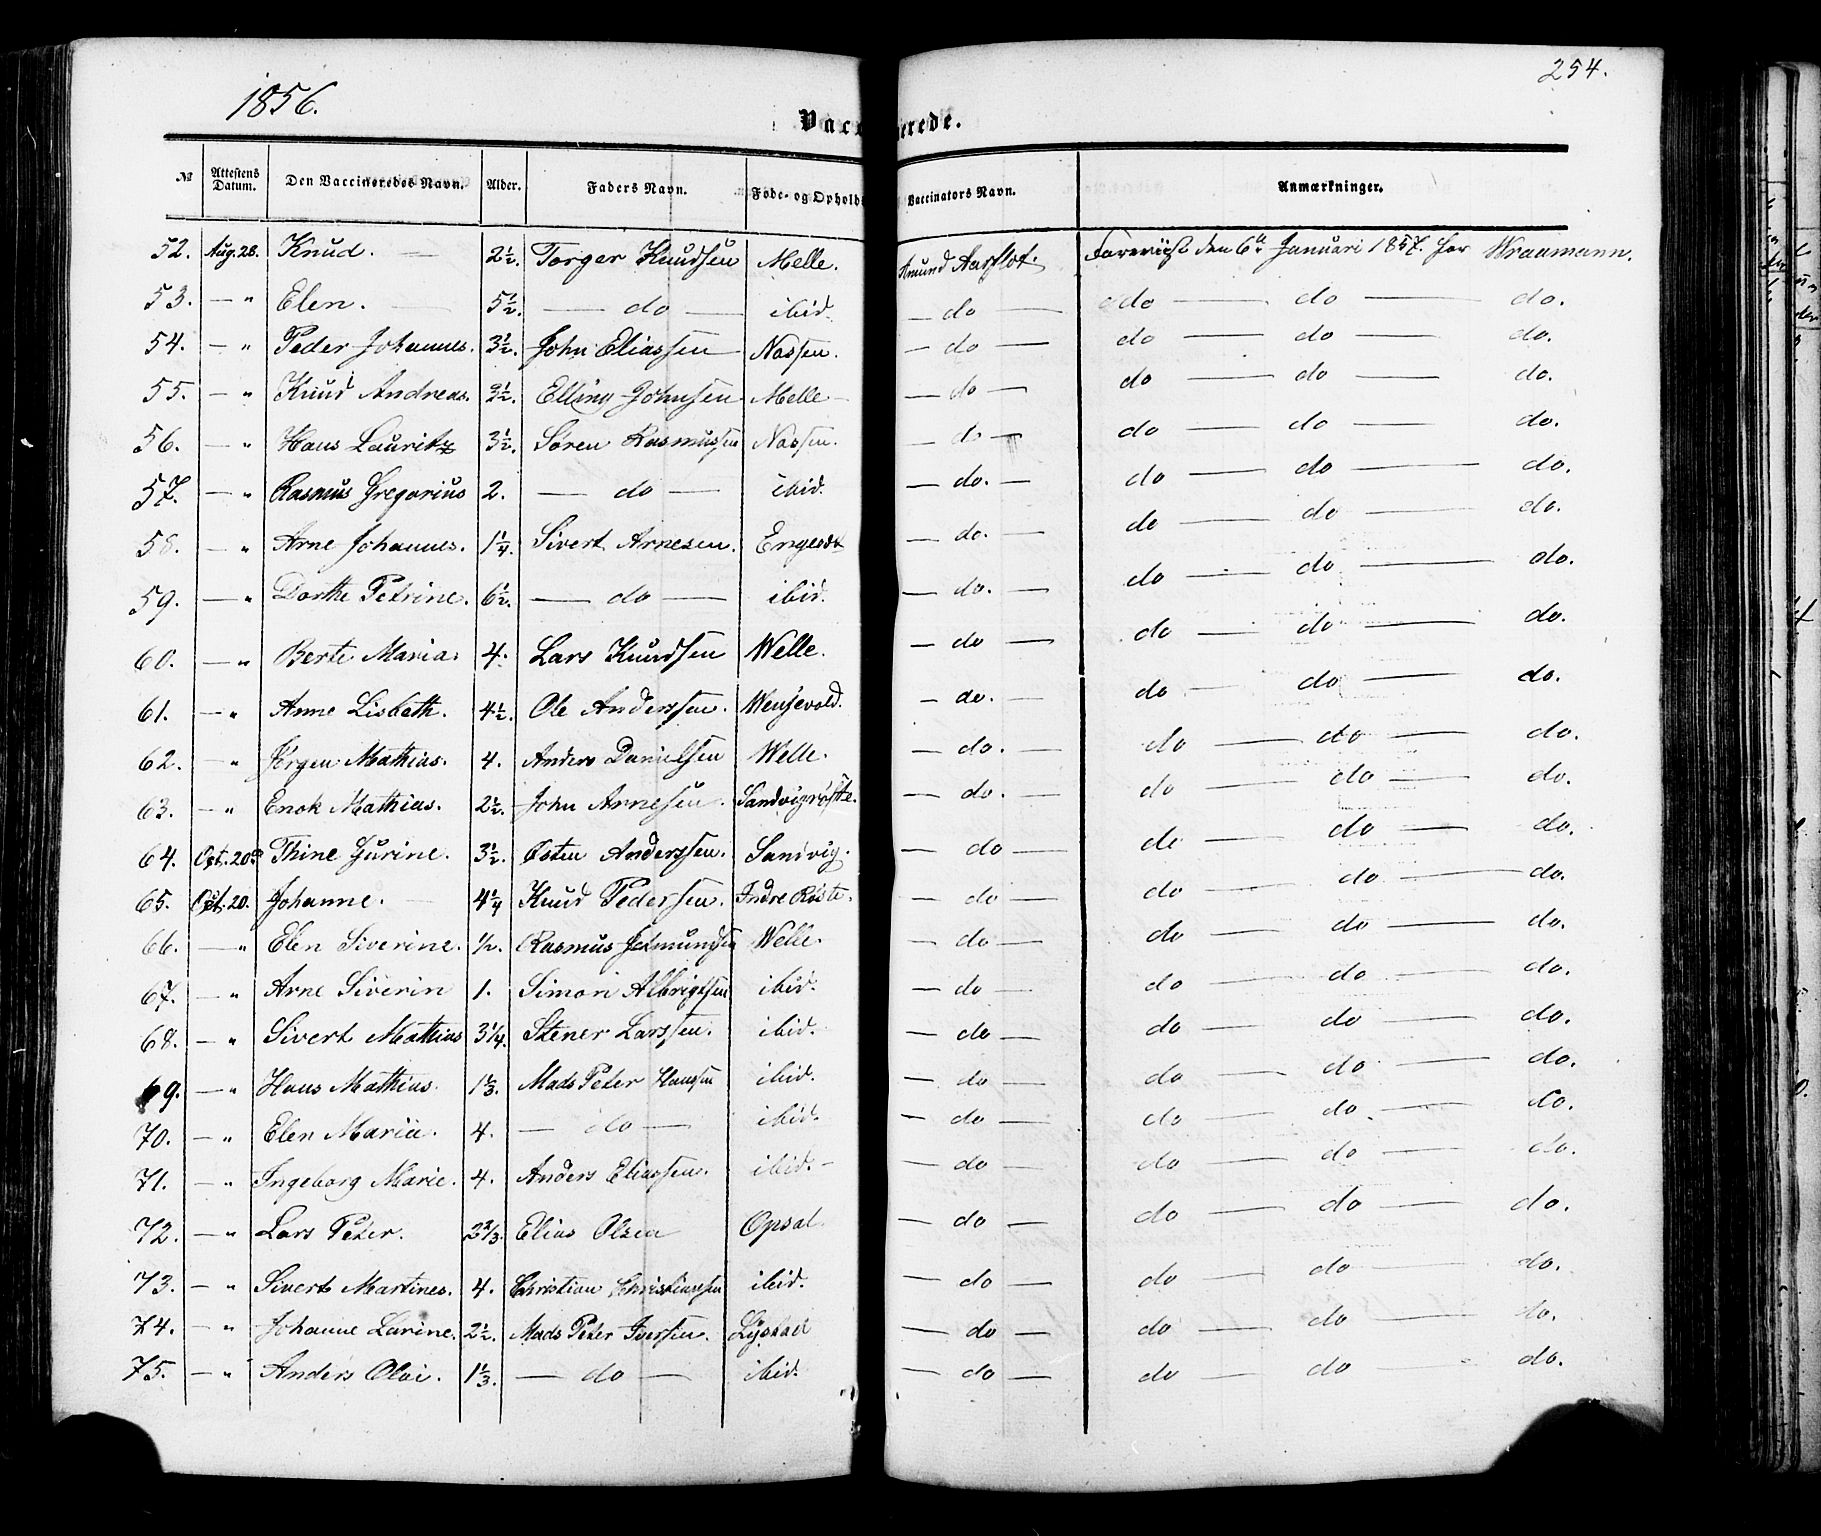 1856.
254.
Vac erede.
№ Attestens Datum. Den Vaccineredes Navn. Alder. Faders Navn. Føde- og Opholds Vaccinators Navn. Anmærkninger.
52. Aug. 28. Knud. — 2½. Torger Knudsen Melle. Amund Aarflot. Forevist den 6te Januari 1857. for Wraamann.
53. — " Elen. — 5½. — do — ibid. — do — do — do — do.
54. — " Peder Johannes. 3½. John Eliassen Nassen. — do — do — do — do.
55. — " Knud Andreas. 3½. Elling Johnsen Melle — — do — do — do — do.
56. — " Hans Lauritz 3½. Søren Rasmussen Nassen. — do — do — do — do.
57. — " Rasmus Gregorius 2. — do — ibid. — do. — do — do — do.
58. — " Arne Johannes. 1¼. Sivert Arnesen. Engeset — do. — do — do — do.
59. — " Dorthe Petrine. 6½. — do — ibid. — do. — do — do — do.
60. — " Berte Maria. 4. Lars Knudsen Welle. — do — do — do — do.
61. — " Anne Lisbeth. 4½. Ole Anderssen. — do. — do — do — do.
62. — " Jørgen Mathias. 4. Anders Danielsen Welle. — do. — do — do — do.
63. — " Enok Mathias. 2½. John Arnesen. — do. — do — do — do.
64. Oct. 20 Thine Gurine. 3½. Østen Anderssen. Sandvig. — do — do — do — do.
65. Oct. 20. Johanne. — 4¼ Knud Pedersen. Indre Røste. — do — do — do — do.
66. — " Elen Siverine. ½. Rasmus Welle. — do — do — do — do.
67. — " Arne Siverin 1. Simon Albrigtsen ibid. — do — do — do — do.
68. — " Sivert Mathias 3¼. Stener Larssen. ibid. — do — do — do — do.
69. — " Hans Mathias. 1⅓. Mads Peter Hansen ibid. — do — do — do — do.
70. — " Elen Maria. 4. — do — ibid. — do — do — do. — do.
71. — " Ingeborg Marie. 4. Anders Eliassen. ibid. — — do — do — do — do.
72. — " Lars Peter. 2⅔. Elias Olsen Opsal. — do — do — do — do.
73. — " Sivert Martines. 4. Christian Christianssen ibid. — do — do — do — do.
74. — " Johanne Larine. 2½. Mads Peter Iversen. Lystad — do — do — do — do.
75. — " Anders Olai. 1⅓. — do — ibid. — do — do — do — do.